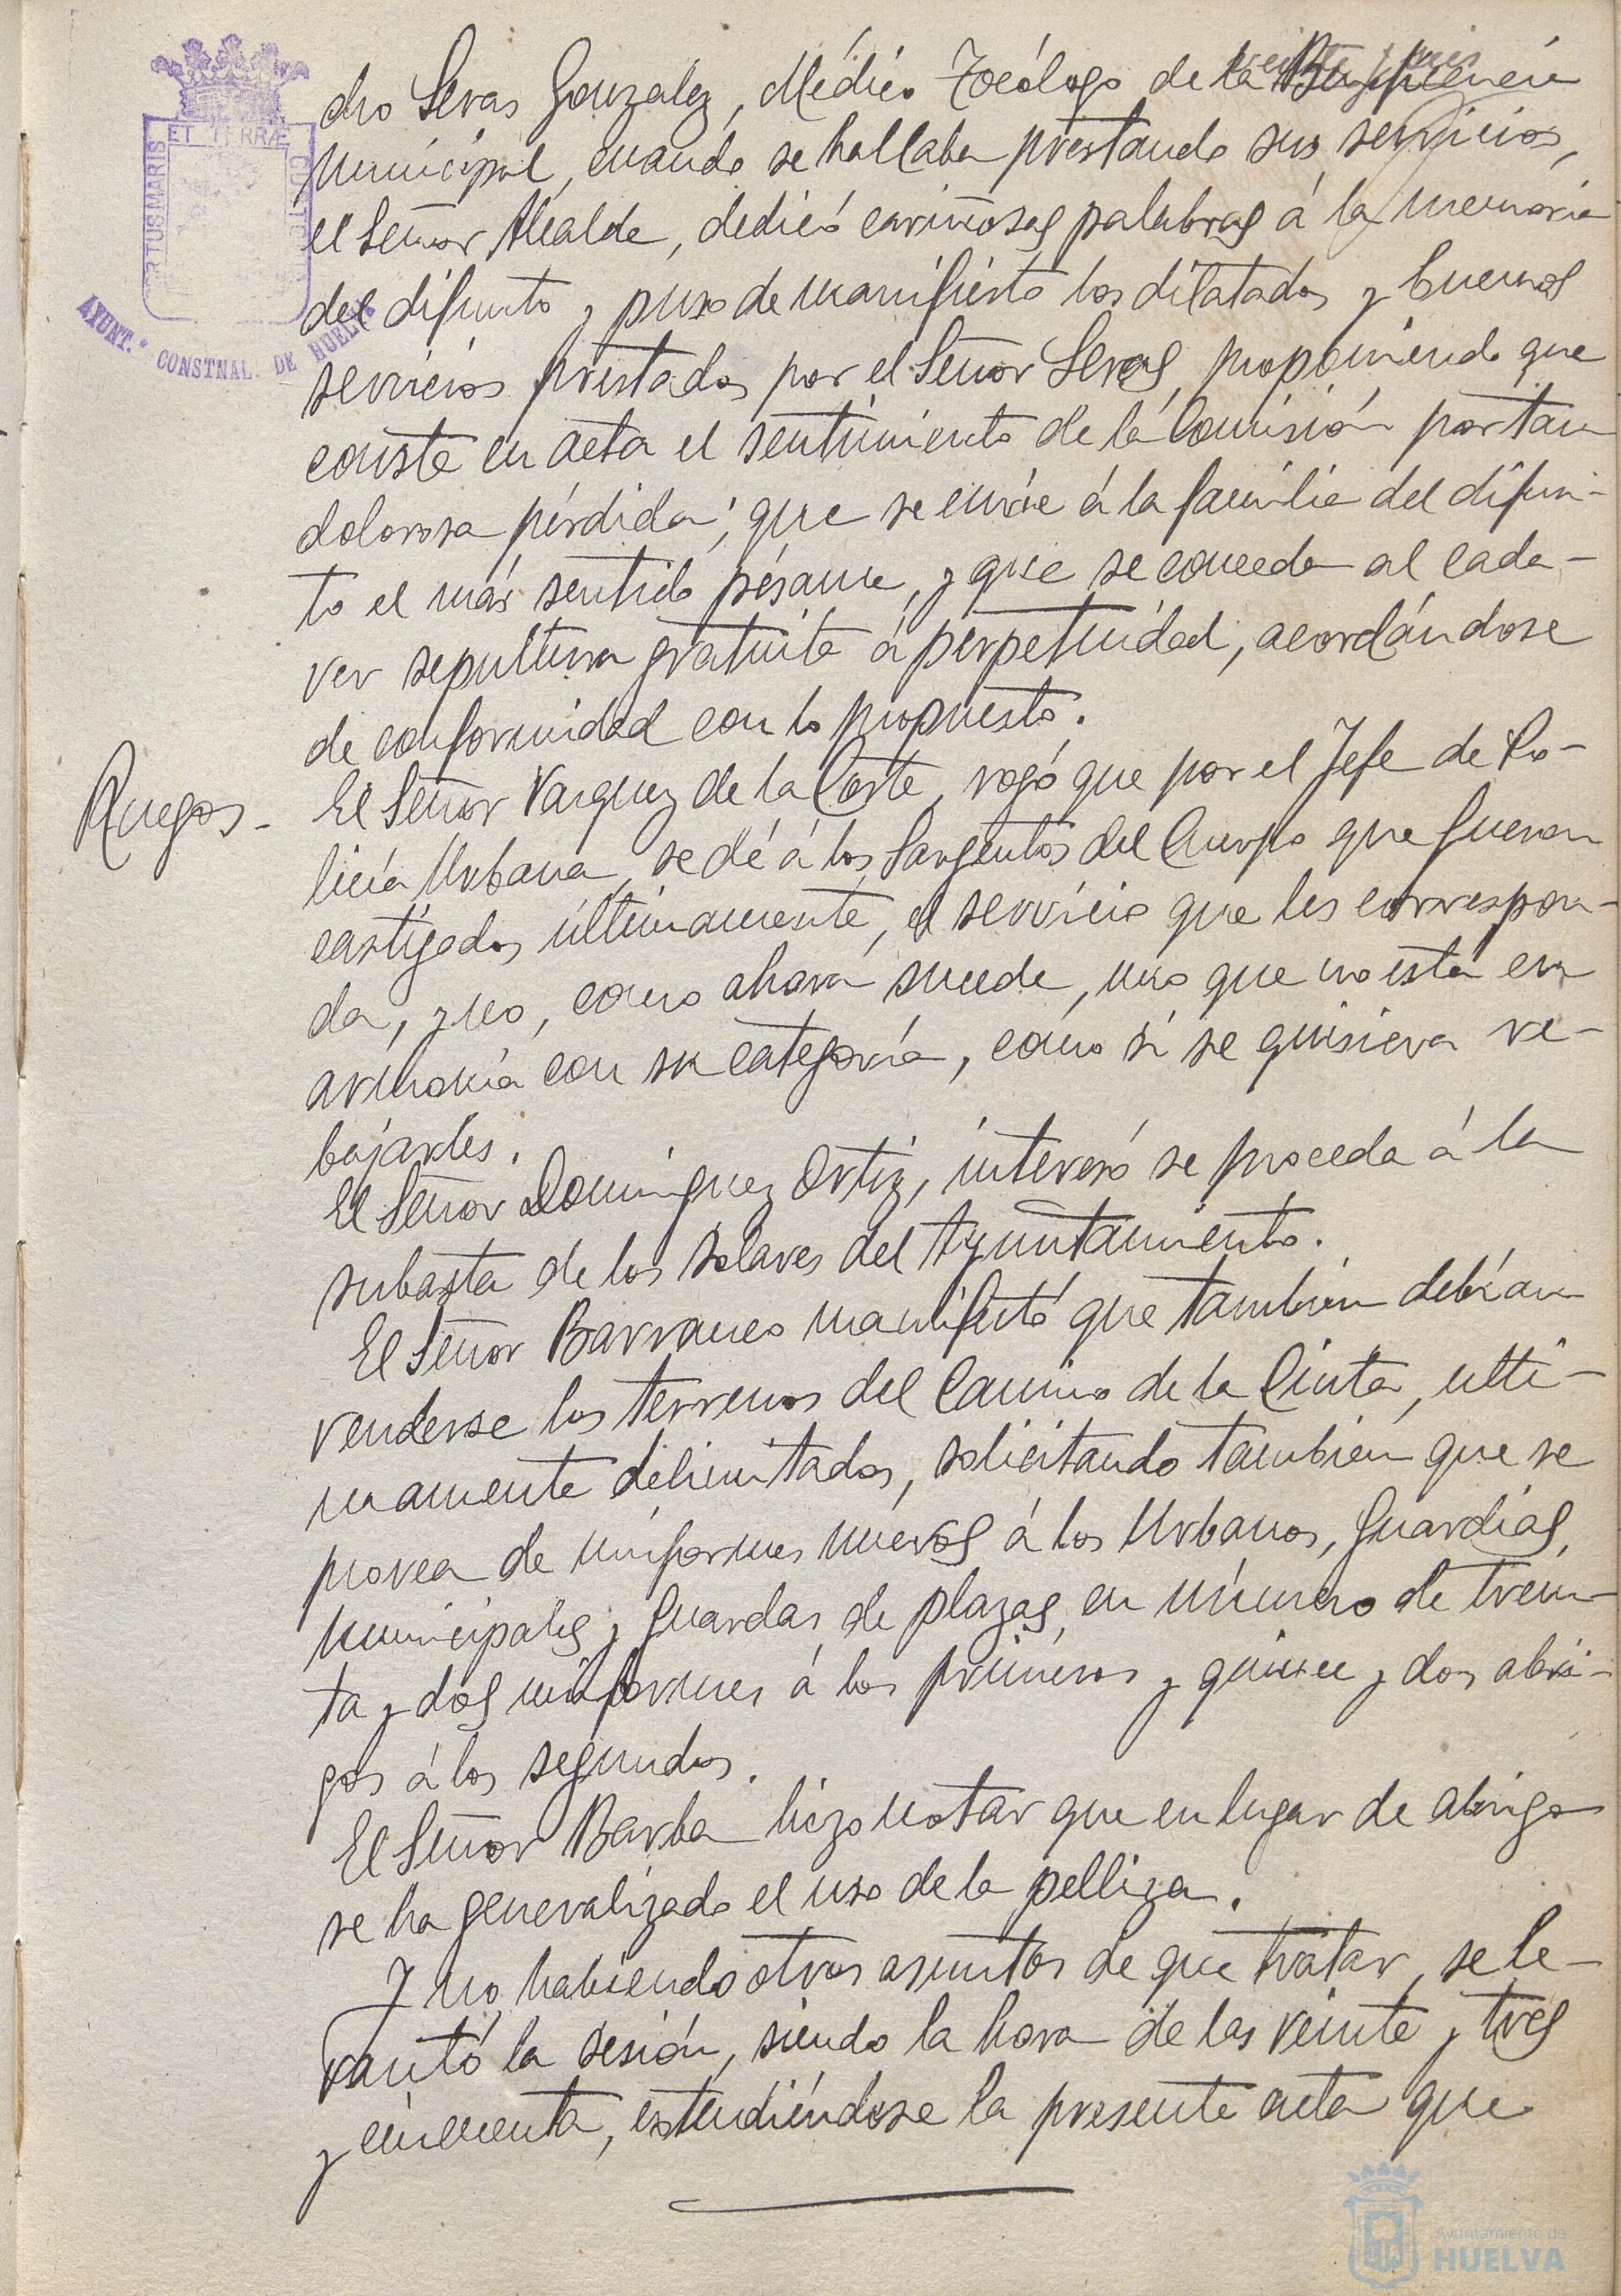 dro Seras Gonzalez, Médico Tocólogo de la Beneficencia
municipal, cuando se hallaba prestando sus servicios,
el Señor Alcalde, dedicó cariñosas palabras á la memoria
del difunto y puso de manifiesto los dilatados y buenos
servicios prestados por el Señor Seras, proponiendo que
conste en acta el sentimiento de la Comisión por tan
dolorosa pérdida; que se envíe á la familia del difun-
to el más sentido pésame, y que se conceda al cadá-
ver sepultura gratuita á perpetuidad, acordándose
de conformidad con lo propuesto.
Ruegos- El Señor Vazquez de la Corte, rogó que por el Jefe de Po-
licía Urbana, se dé á los Sargentos del Cuerpo que fueron
castigados últimamente, el servicio que les correspon-
da, y no, como ahora sucede, uno que no está en
armonía con su categoría, como si se quisiera re-
bajarles.
El Señor Dominguez Ortiz, interesó se proceda á la
subasta de los solares del Ayuntamiento.
El Señor Barranco manifestó que también debían
venderse los terrenos del Camino de la Cinta, ulti-
mamente delimitados, solicitando también que se
provea de uniformes nuevos á los Urbanos, Guardias,
municipales y Guardas de plazas, en número de trein-
ta y dos uniformes á los primeros y quince y dos abri-
gos á los segundos.
El Señor Barba hizo notar que en lugar de abrigo
se ha generalizado el uso de la pelliza.
Y no habiendo otros asuntos de que tratar, se le-
vantó la sesión, siendo la hora de las veinte y tres
y cincuenta, extendiéndose la presente acta que
ET TERRÆ
RTUS MARIS
AYUNT.º CONSTNAL. DE HUELVA
Ayuntamiento de
HUELVA